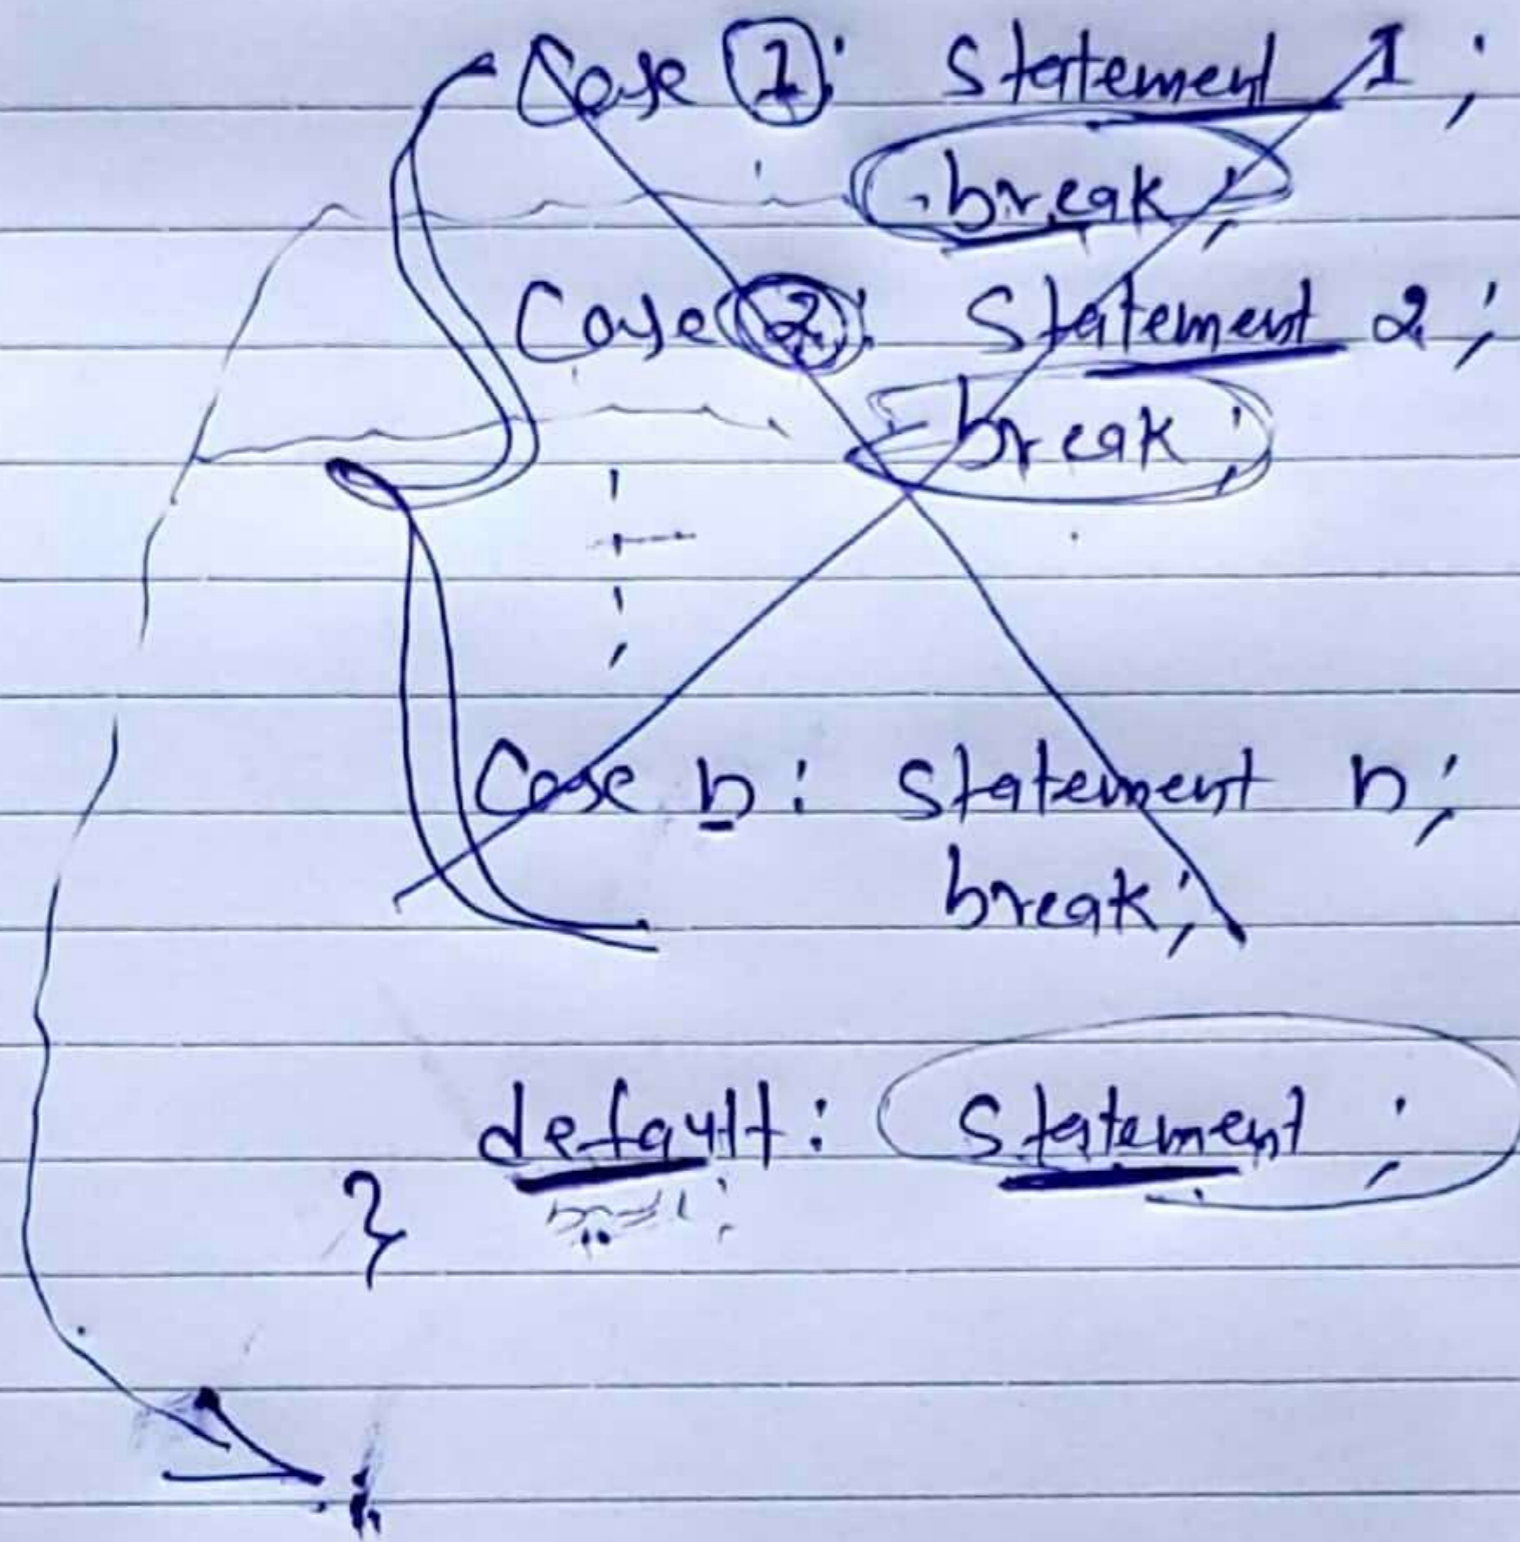 Case 1: Statement 1;
break;
Case 2: Statement 2;
break;
Case n: Statement n;
break;
default: Statement;
}